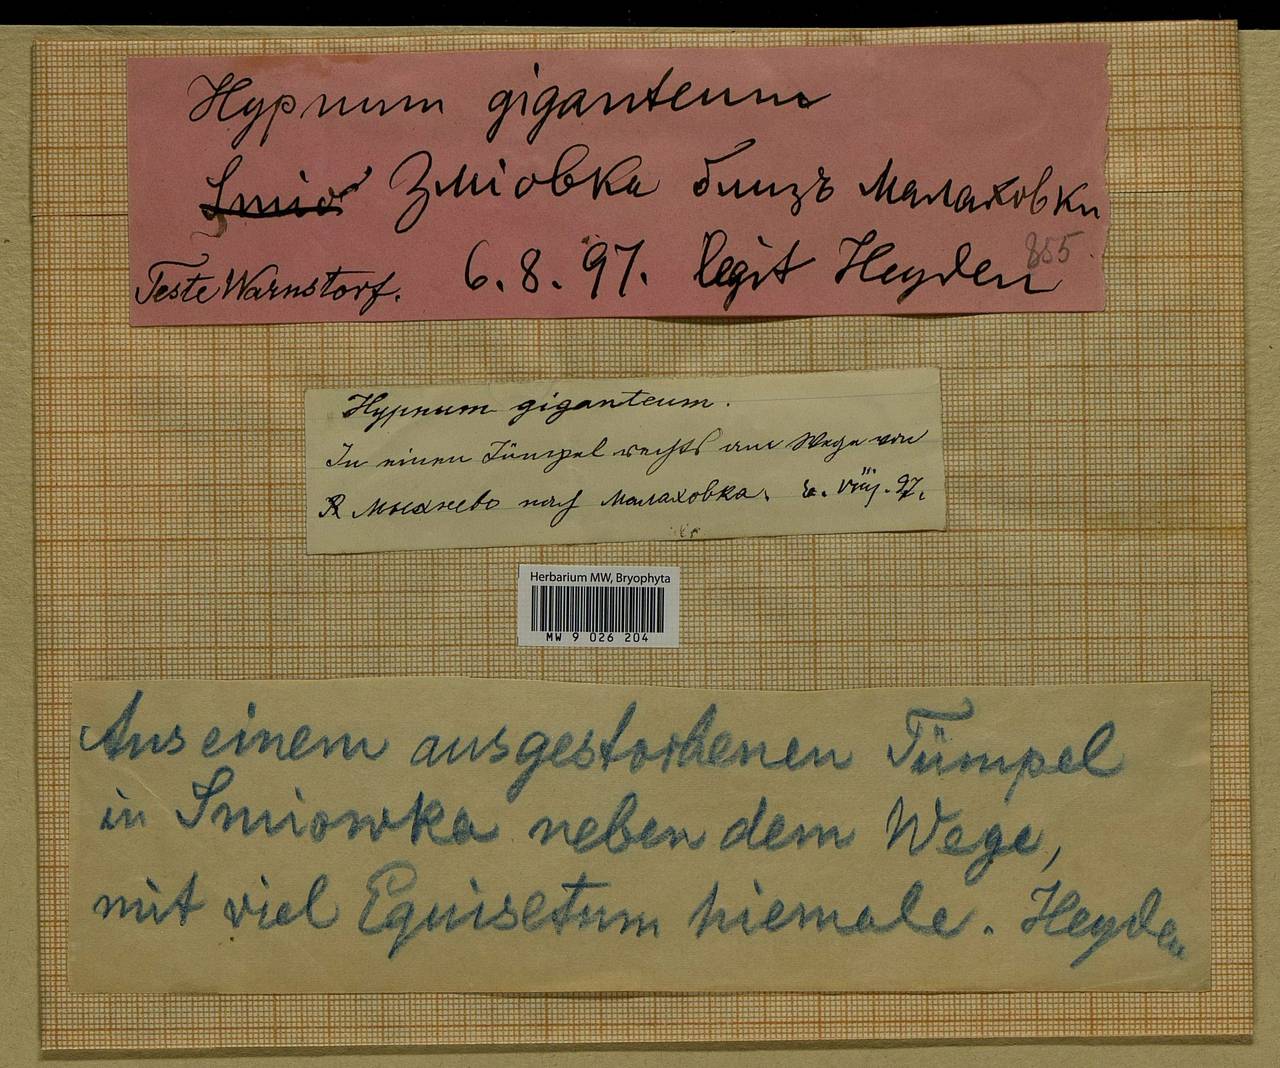 Hypnum giganteum
Smio Зміовка близъ Малаховки
Teste Warnstorf. 6.8.97. legit Heyden 855.
Hypnum giganteum.
In einem Tümpel rechts am Wege von
Мыхнево nach Малаховка. VIII. 97.
Herbarium MW, Bryophyta
MW 9 026 204
Aus einem ausgestorbenen Tümpel
in Smiowka neben dem Wege,
mit viel Equisetum hiemale. Heyden